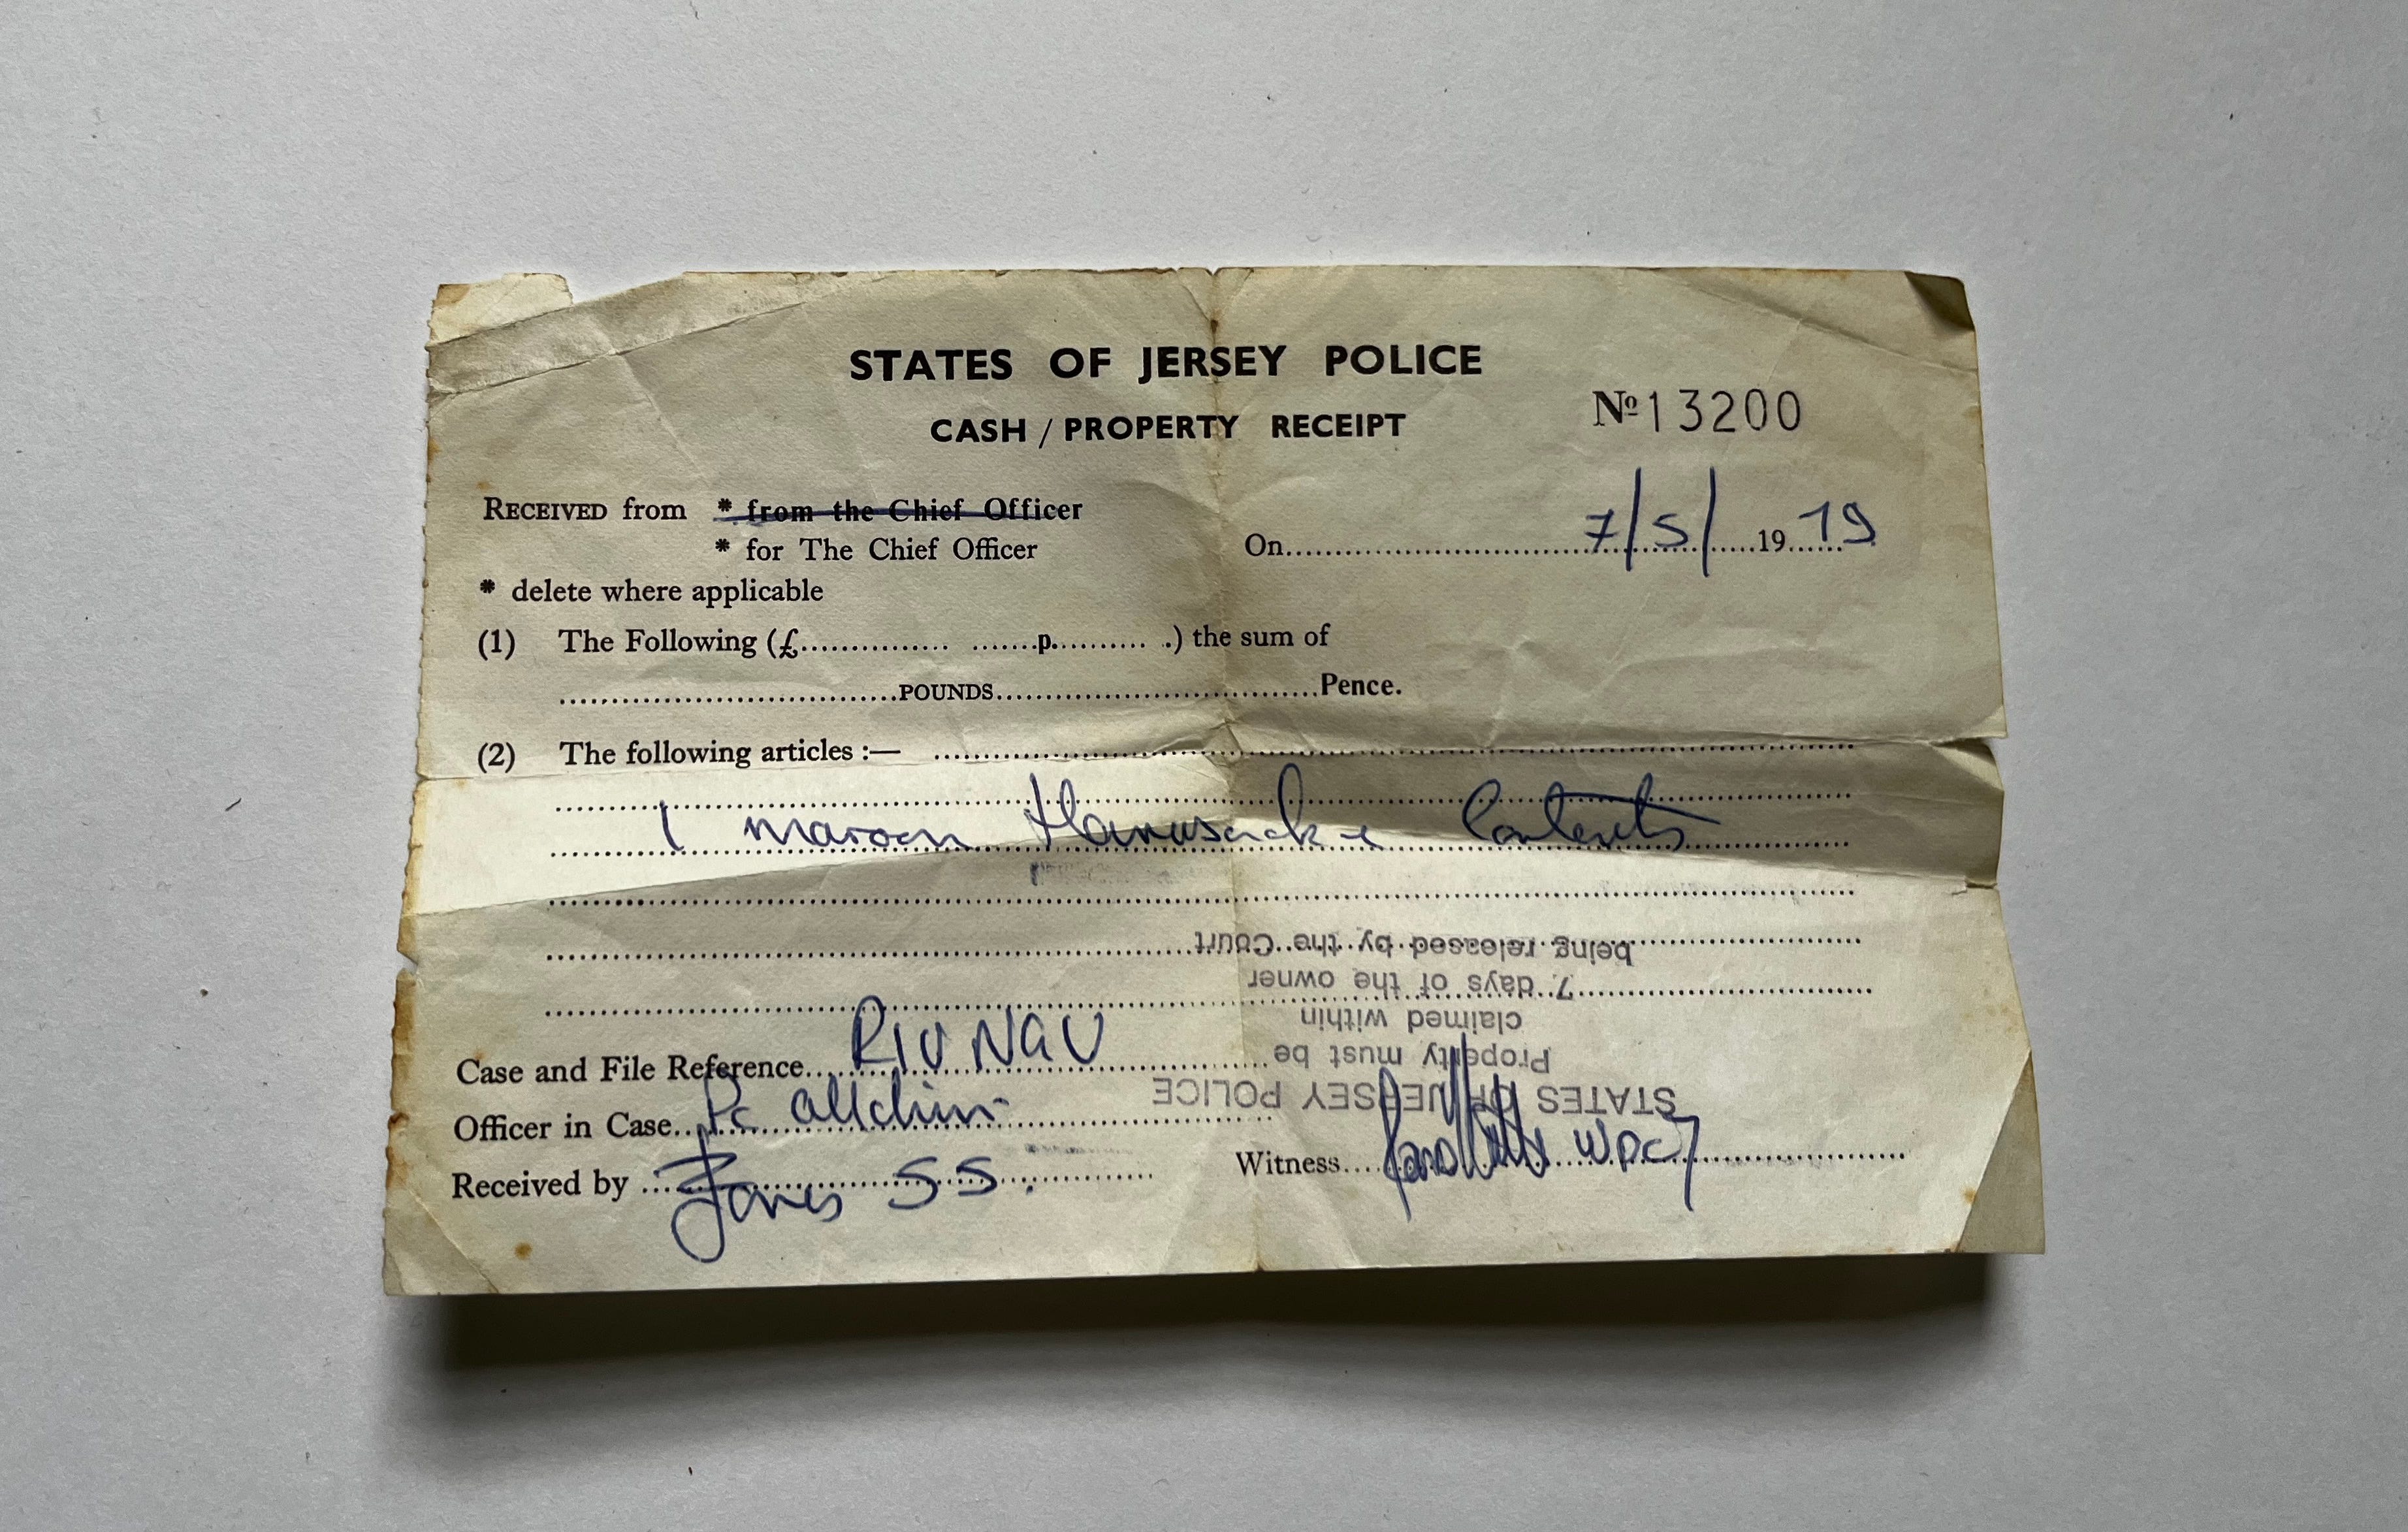 STATES OF JERSEY POLICE
CASH / PROPERTY RECEIPT
№ 13200
RECEIVED from * from the Chief Officer
* for The Chief Officer
On 7/5/ 19 79
* delete where applicable
(1) The Following (£ p. .) the sum of
POUNDS Pence.
(2) The following articles :—
1 maroon Haversack & Contents
Case and File Reference
Officer in Case Pc Allchin
Received by Jones SS.
Witness WPC 7
STATES OF JERSEY POLICE
Property must be
claimed within
7 days of the owner
being released by the Court